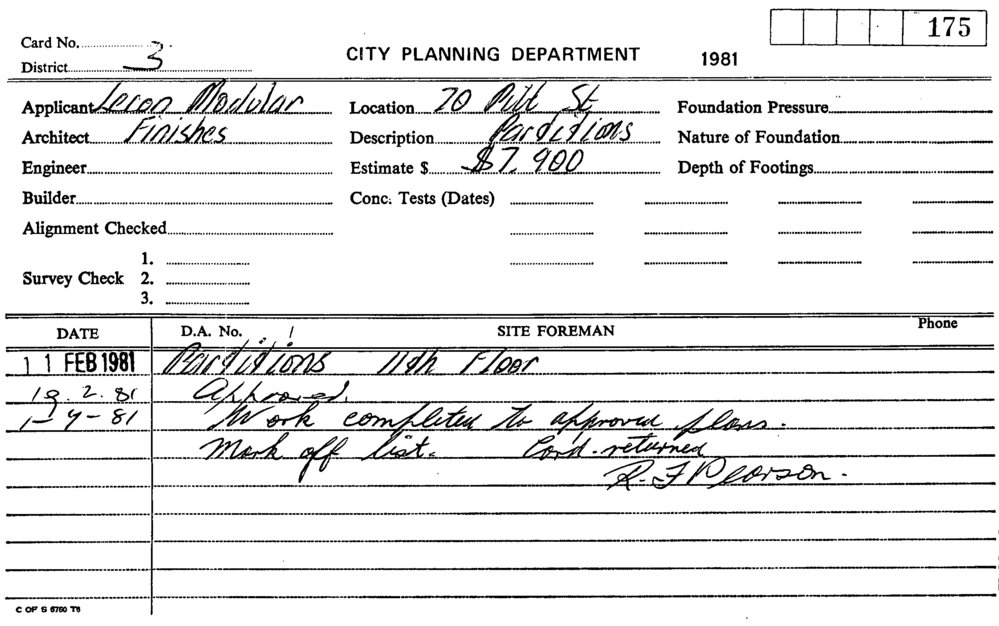 175
Card No.
District 3
CITY PLANNING DEPARTMENT 1981
Applicant Leron Modular Location 70 Pitt St Foundation Pressure
Architect Finishes Description Partitions Nature of Foundation
Engineer Estimate $ $7,900 Depth of Footings
Builder Conc. Tests (Dates)
Alignment Checked
1.
Survey Check 2.
3.
DATE D.A. No. SITE FOREMAN Phone
11 FEB 1981 Partitions 11th Floor
19.2.81 Approved.
1-4-81 Work completed to approved plans.
Mark off list. Card returned
R. F Pearson.
C OF S 6760 T6